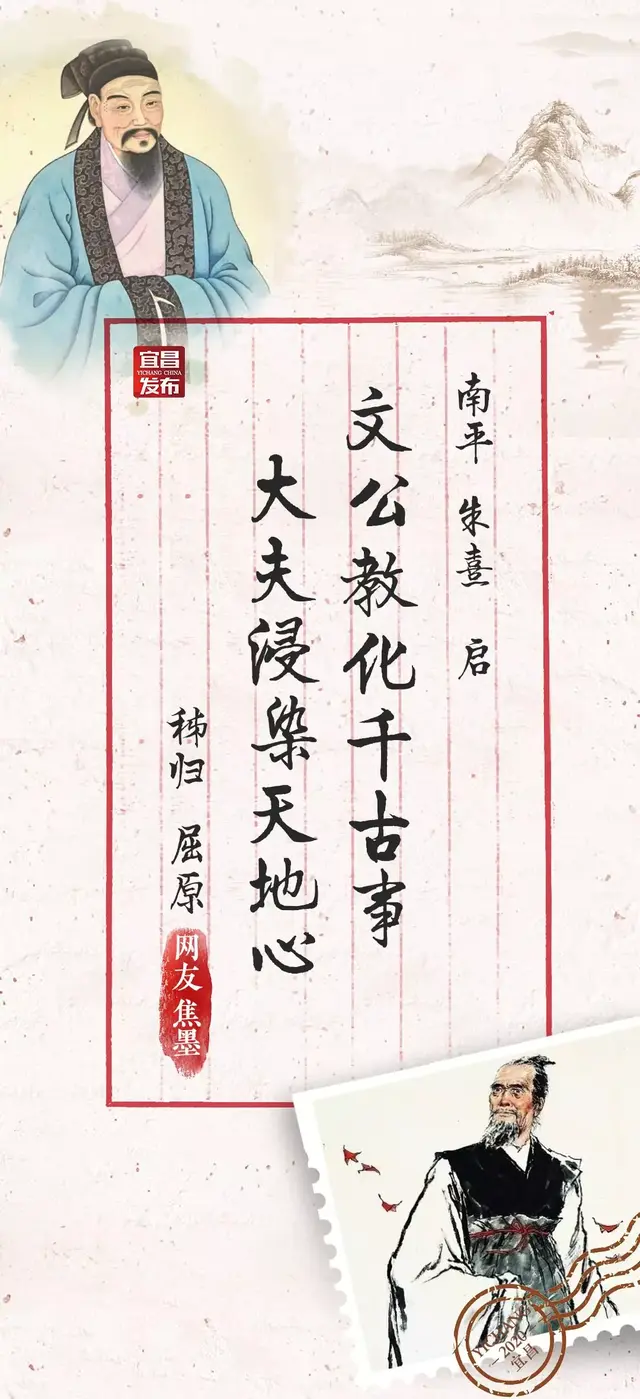 宜昌
YICHANG CHINA
发布
南平 朱熹 启
文公教化千古事
大夫浸染天地心
秭归 屈原
网友 焦墨
2020
宜昌